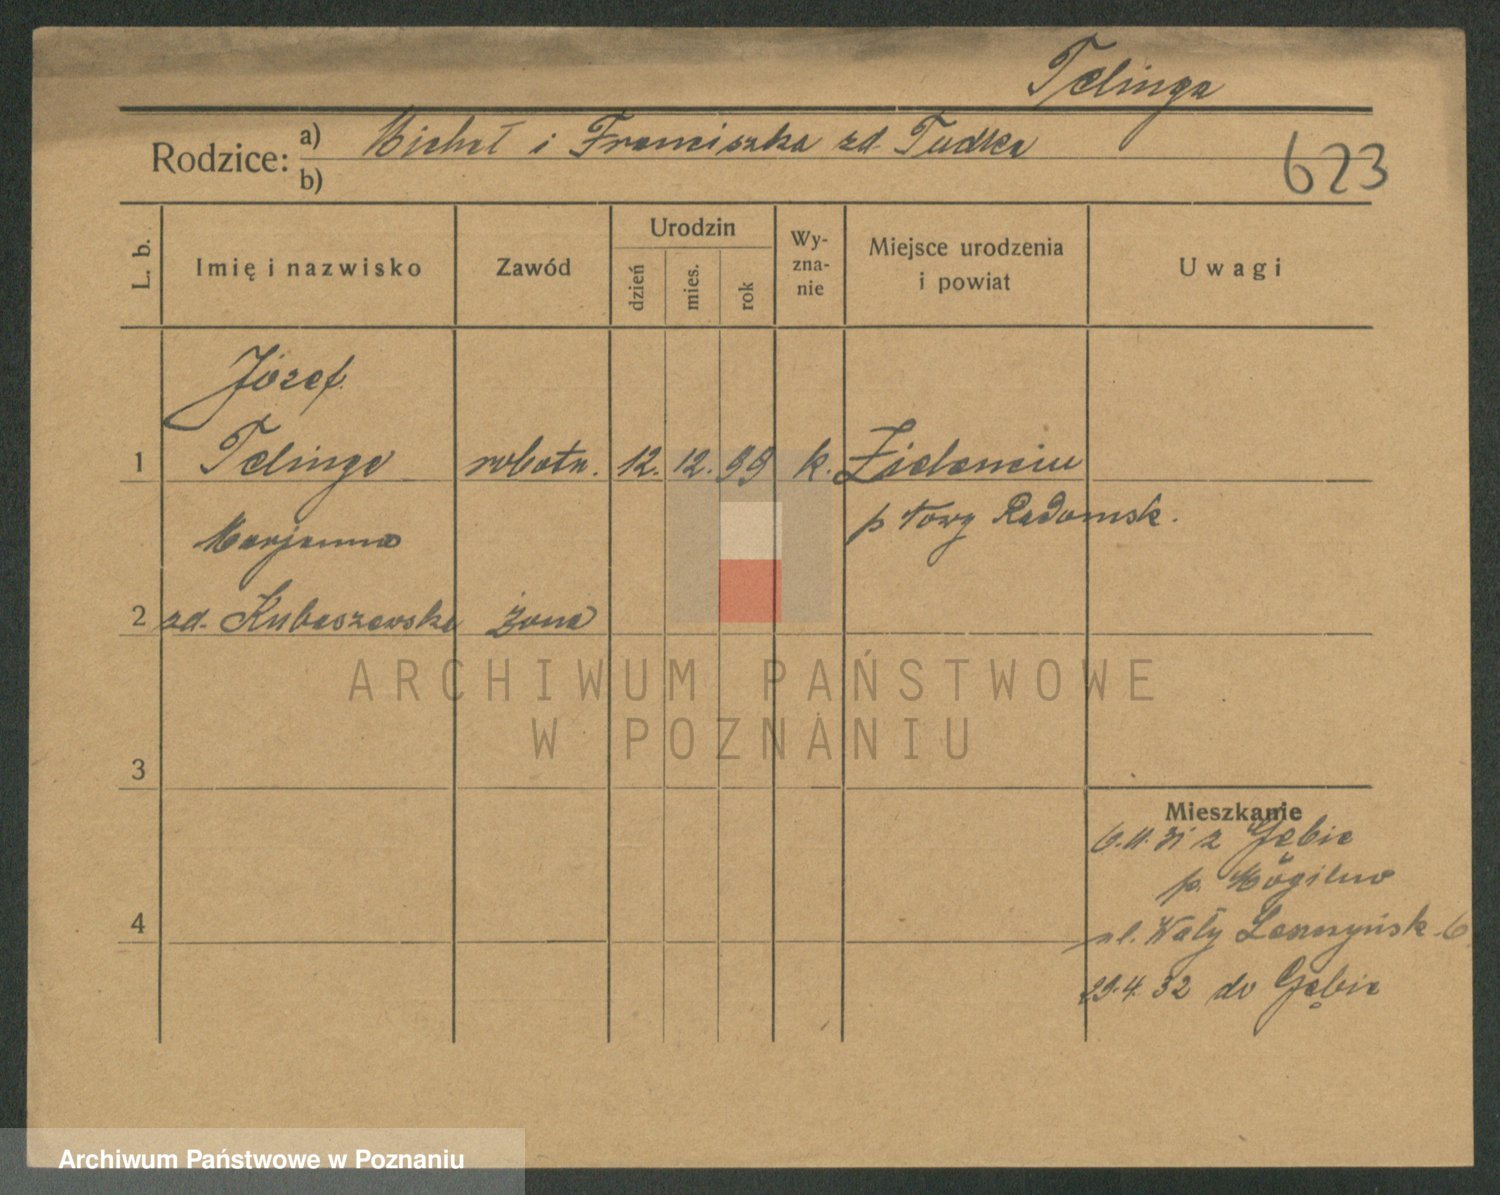 Telinga
Rodzice: a) Michał i Franciszka zd. Tudka
b)
623
L. b. Imię i nazwisko Zawód Urodzin dzień mies. rok Wy-zna-nie Miejsce urodzenia i powiat Uwagi
Józef
1 Telinga robotn. 12. 12. 99 k. Zieleniu
p Nowy Radomsk.
Marjanna
2 zd. Kubaszewska żona
ARCHIWUM PAŃSTWOWE
W POZNANIU
3
Mieszkanie
6.11.31 z Gębic
p. Mogilno
4 ul. Wały Leszczyńsk. 6
29.4.32 do Gębic
Archiwum Państwowe w Poznaniu